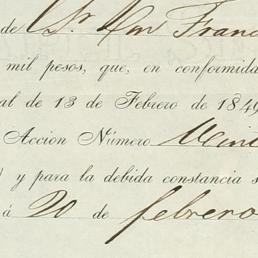 de Sr. Don Franc
mil pesos, que, en conformida
al de 13 de Febrero de 184
Accion Número
) y para la debida constancia s
á 20 de febrero